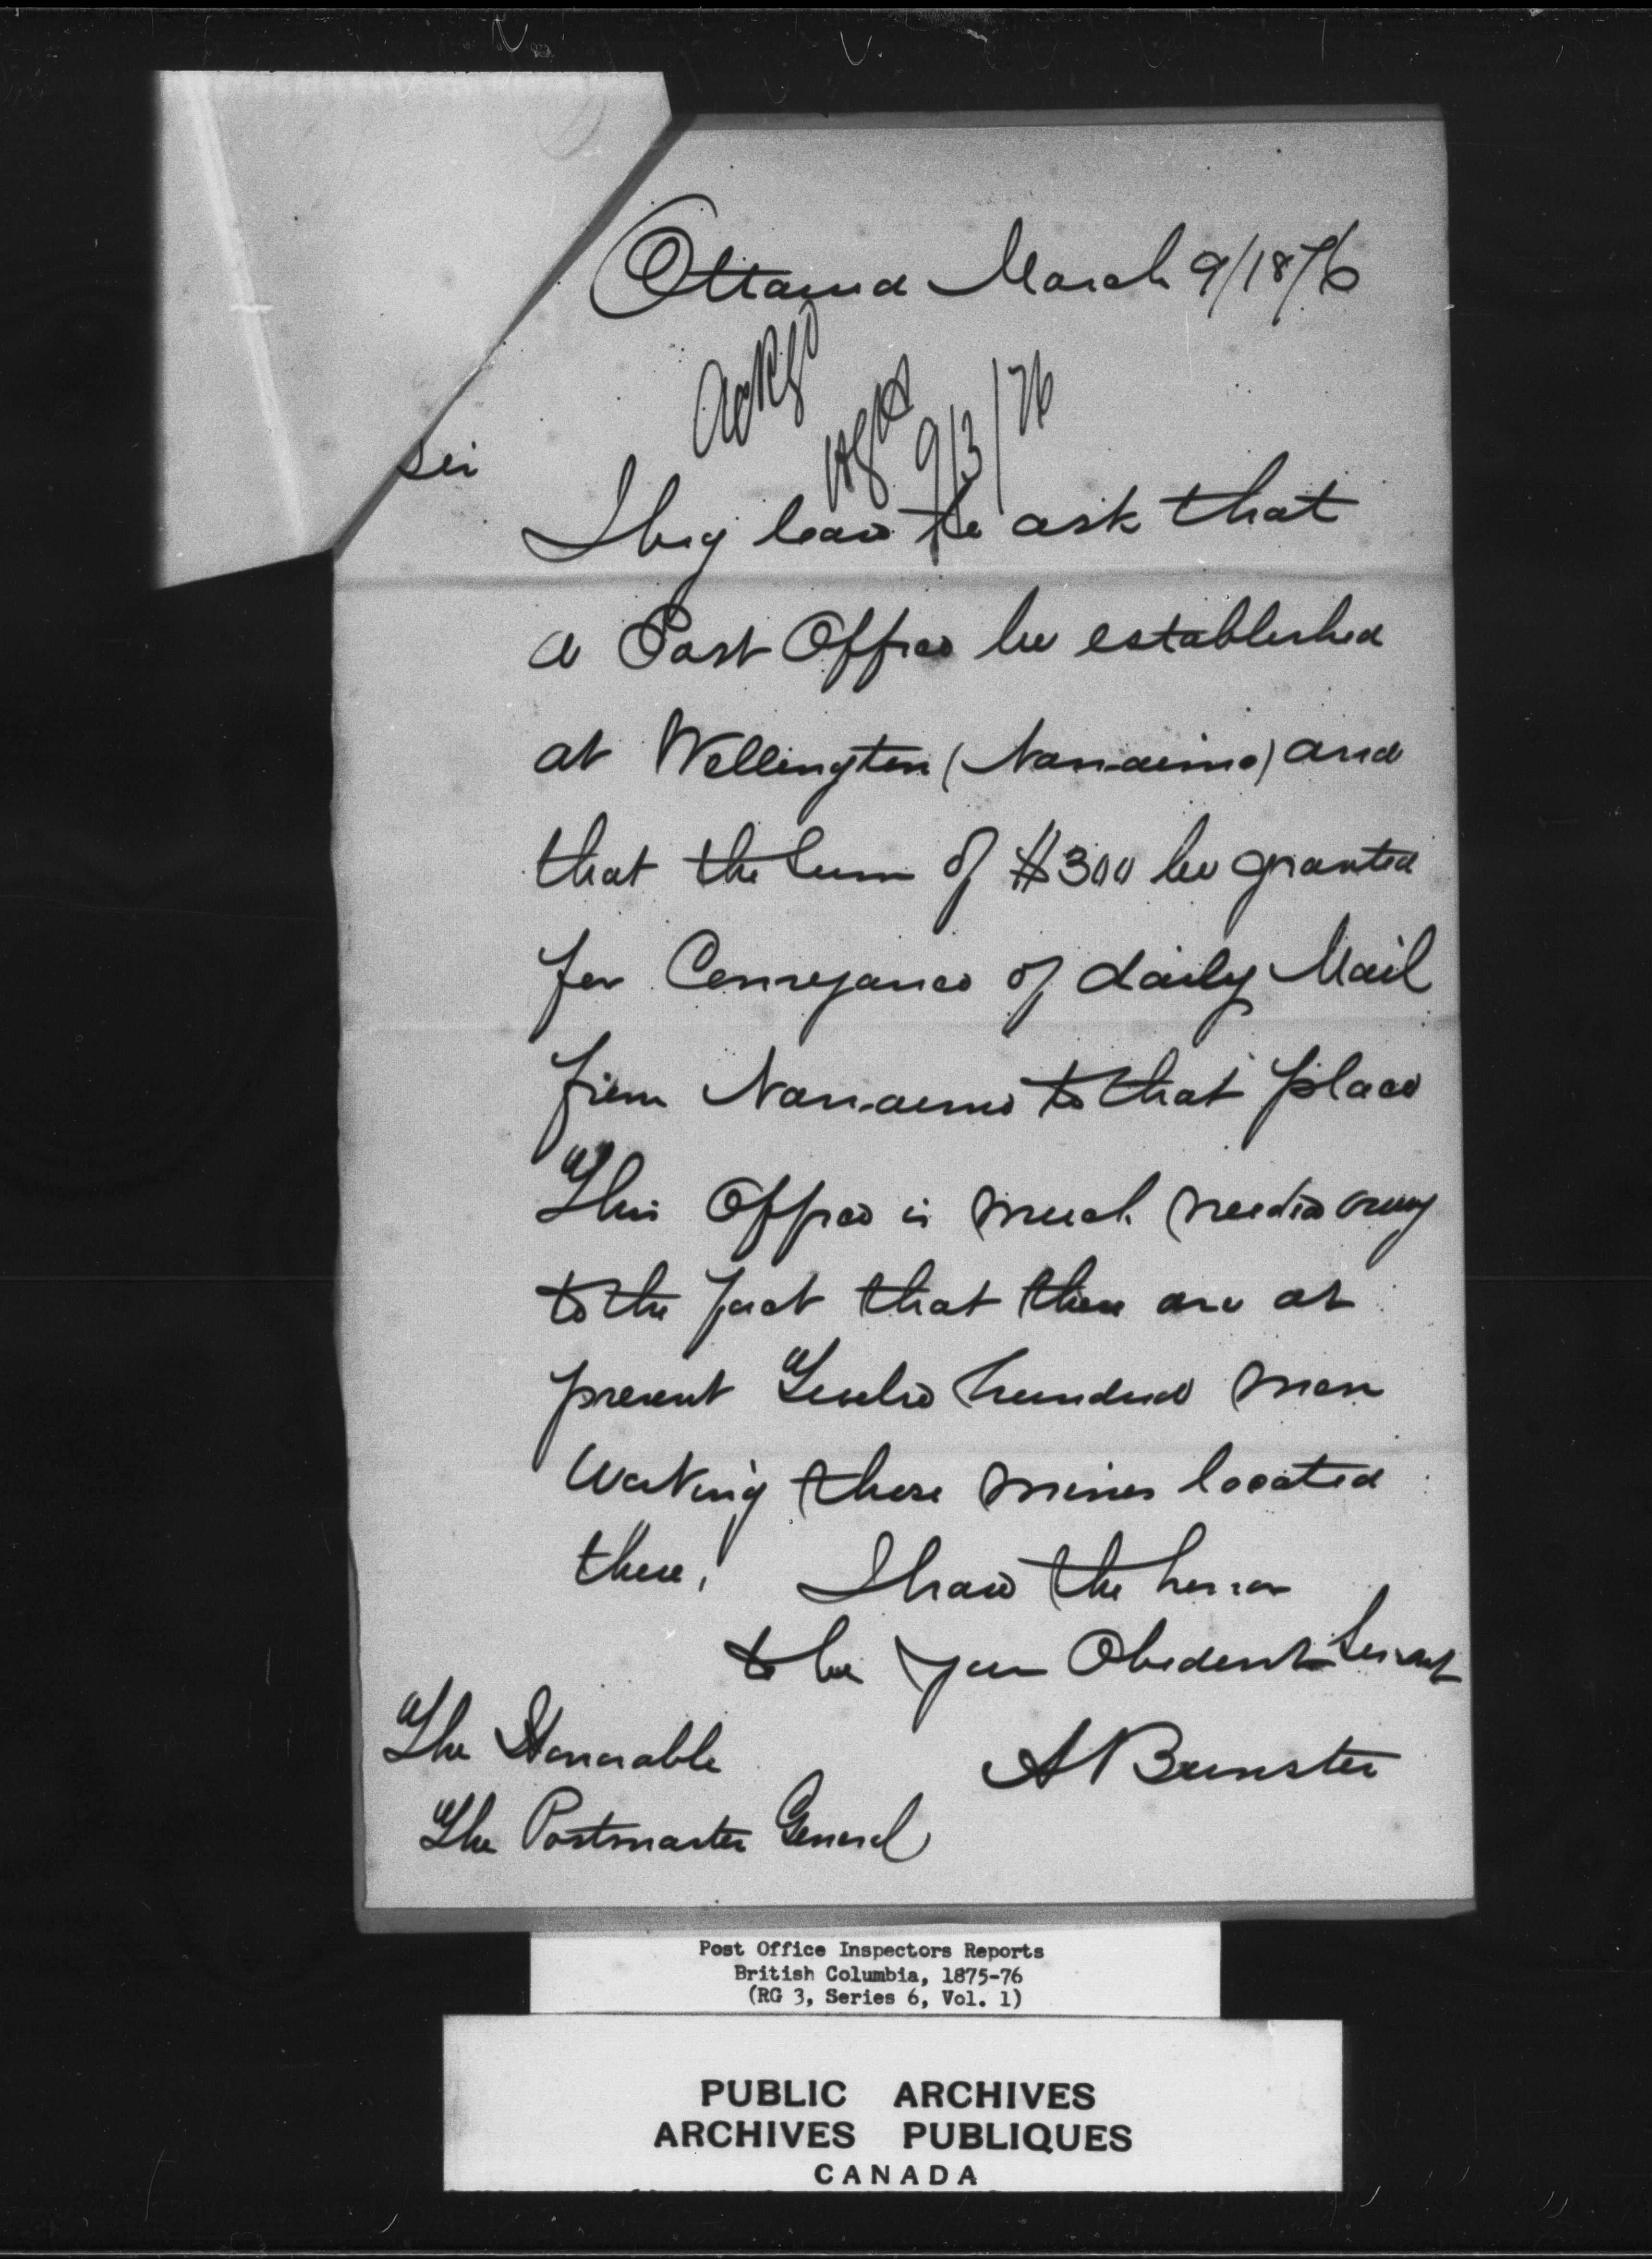 Ottawa March 9/1876
Ackgd
9/3/76
Sir
I beg leave to ask that
a Post Office be established
at Wellington (Nanaimo) and
that the Sum of $300 be granted
for Conveyance of daily Mail
from Nanaimo to that place
This Office is much needed owing
to the fact that there are at
present Twelve hundred men
Working those mines located
there. I have the honor
to be your Obedient Servant
The Honorable
A Bunster
The Postmaster General
Post Office Inspectors Reports
British Columbia, 1875-76
(RG 3, Series 6, Vol. 1)
PUBLIC ARCHIVES
ARCHIVES PUBLIQUES
CANADA